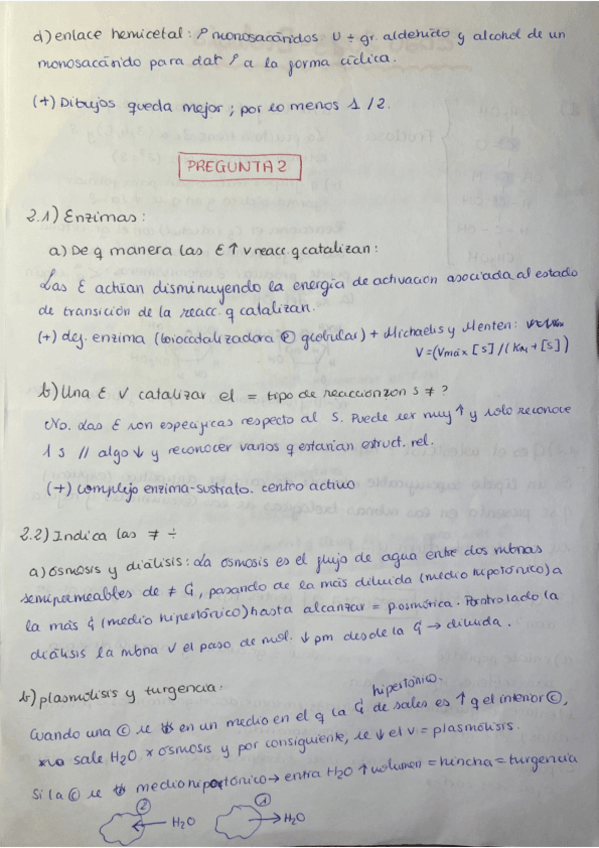 d) enlace hemicetal: ρ monosacáridos U ÷ gr aldehído y alcohol de un
monosacárido para dar ρ a la forma cíclica.
(+) Dibujos queda mejor; por lo menos 1/2.
PREGUNTA 2
2.1) Enzimas:
a) De q manera las E ↑ v reacc. q catalizan:
Las E actúan disminuyendo la energía de activación asociada al estado
de transición de la reacc. q catalizan.
(+) def. enzima (biocatalizadora Ⓟ globular) + Michaelis y Menten:
V=(Vmáx [S]/(KM+[S])
b) Una E V catalizar el = tipo de reacción con S ≠?
No. Las E son específicas respecto al S. Puede ser muy ↑ y solo reconoce
1 s // algo ↓ y reconocer varios q estarían estruct. rel.
(+) complejo enzima-sustrato. centro activo
2.2) Indica las ≠ ÷
a) Ósmosis y diálisis: La ósmosis es el flujo de agua entre dos mbnas
semipermeables de ≠ [, pasando de la más diluida (medio hipotónico) a
la más [ (medio hipertónico) hasta alcanzar = p osmótica. Por otro lado la
diálisis la mbna V el paso de mol. ↓ pm desde la [ → diluida.
b) plasmólisis y turgencia:
hipertónico.
Cuando una Ⓒ se en un medio en el q la [ de sales es ↑ q el interior Ⓒ,
sale H2O x osmosis y por consiguiente, se ↓ el V = plasmólisis.
Si la Ⓒ se medio hipotónico → entra H2O ↑ volumen = hincha = turgencia
② ①
← H2O → H2O